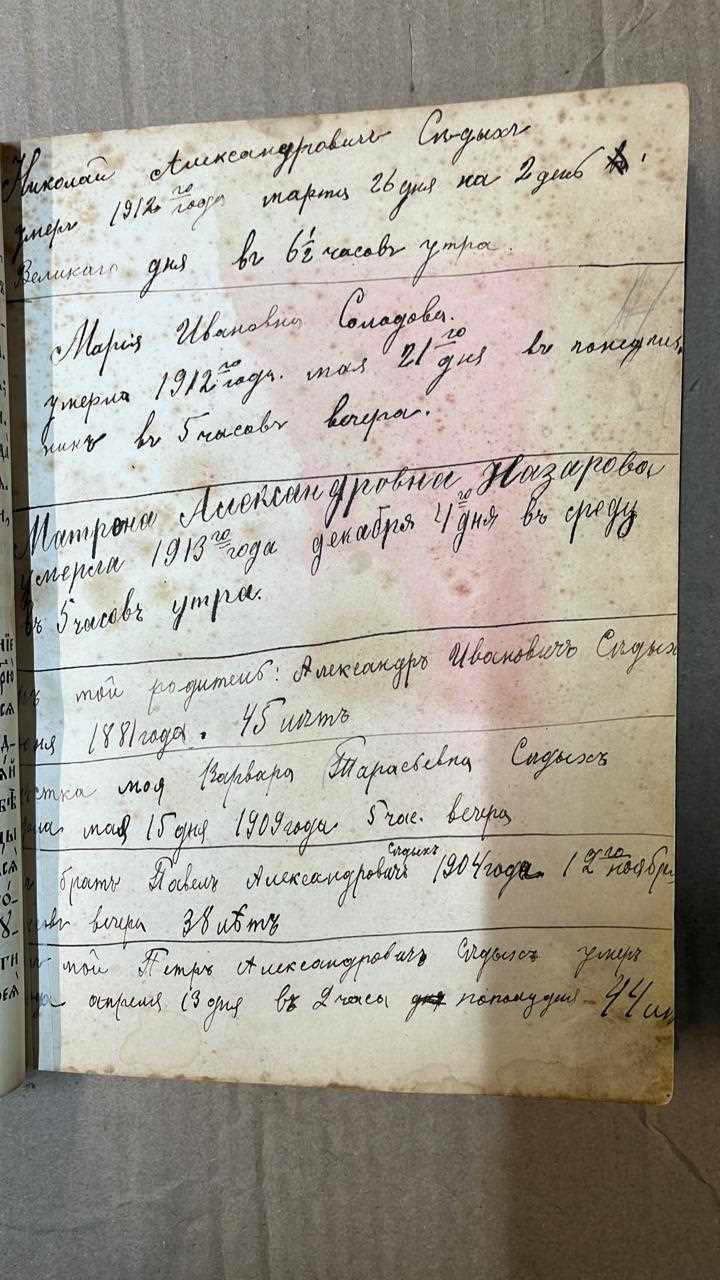 Николай Александровичъ Сѣдыхъ
умеръ 1912го года марта 26 дня на 2 день
Великаго дня въ 6½ часовъ утра.
Марія Ивановна Солодова.
умерла 1912го года. мая 21го дня въ понедѣль
никъ въ 5 часовъ вечера.
Матрона Александровна Назарова
умерла 1913го года декабря 4го дня въ среду
въ 5 часовъ утра.
мой родитель: Александръ Ивановичъ Сѣдых
1881 года. 45 лѣтъ
моя Варвара Тарасьевна Сѣдыхъ
мая 15 дня 1909 года 5 час. вечера
братъ Павелъ Александровичъ Сѣдыхъ 1904 года. 12го ноябр
вечера 38 лѣтъ
мой Петръ Александровичъ Сѣдыхъ умеръ
апреля 13 дня въ 2 часа пополудня - 44
НІЕ
РЮ
СЯ
Д-
ЛЙ
ВѢ
ДЫ
СЯ
О-
У-
ГИ
РЕЯ